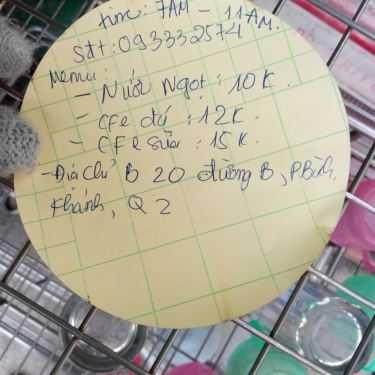 time: 7AM - 11AM.
Stt: 0933332574
Menu:
- Nước Ngọt: 10K.
- Cfe đá: 12K.
- Cfe sữa: 15K.
- Địa chỉ B 20 đường B, P Bình
Khánh, Q 2